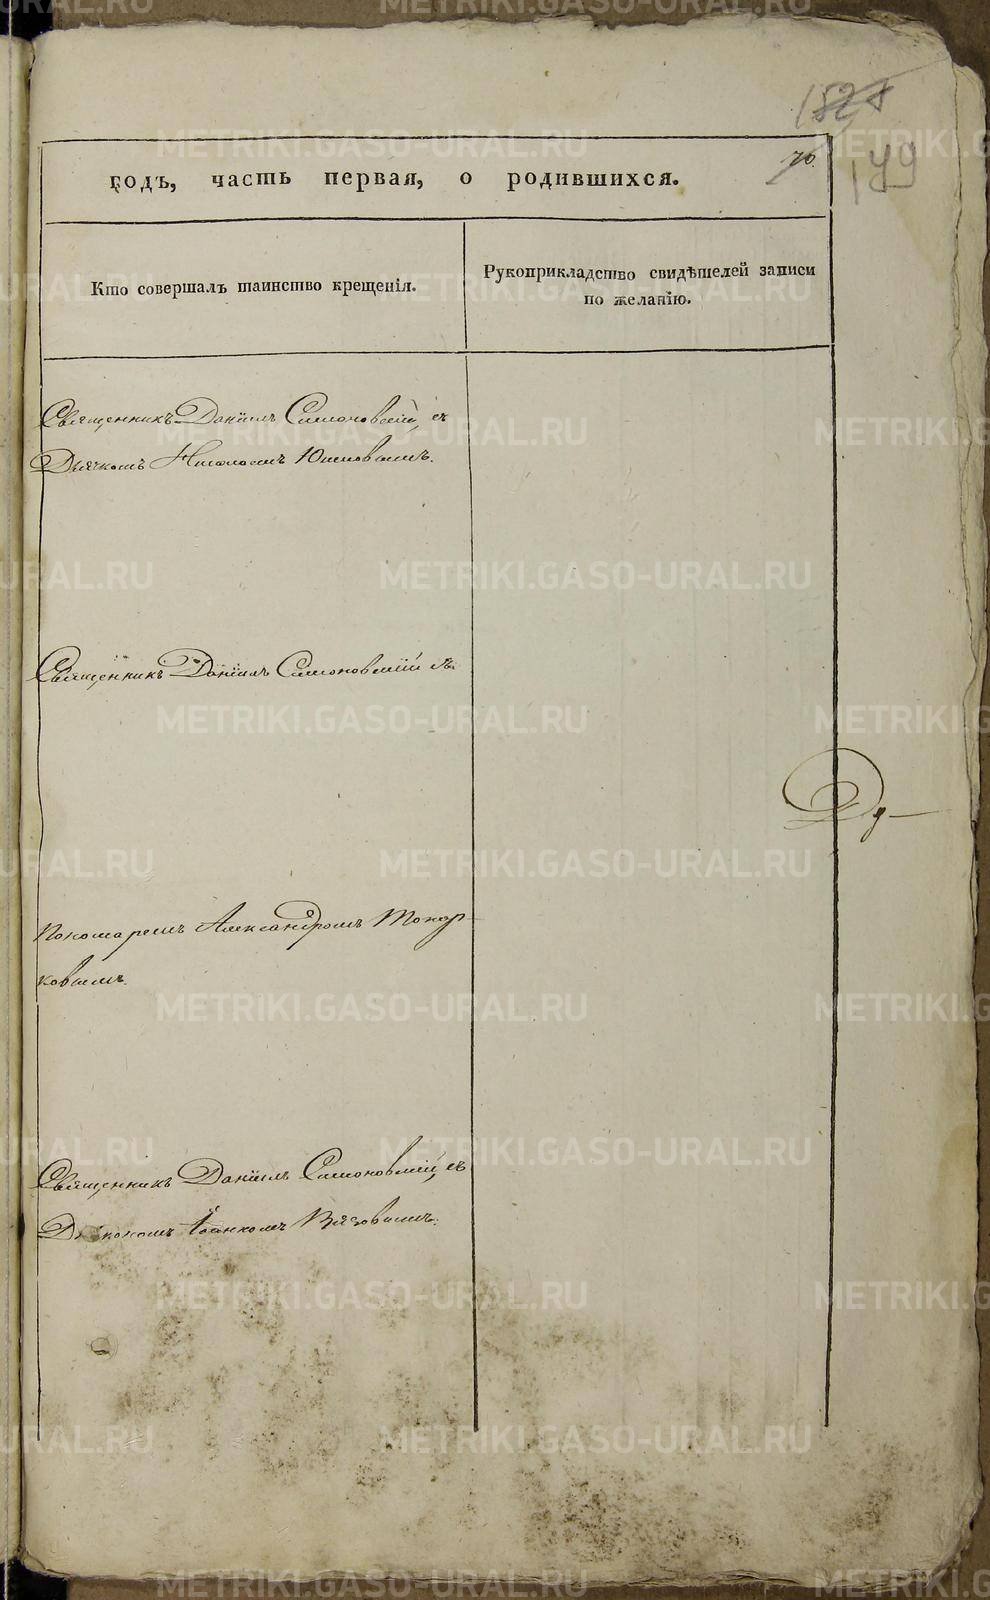 76.
149
годъ, часть первая, о родившихся.
Кто совершалъ таинство крещенія.
Рукоприкладство свидѣтелей записи
по желанію.
Священникъ Даніилъ Симоновскій, съ
Дьячкомъ
Священникъ Даніилъ Симоновскій съ
Пономаремъ Александромъ Токар-
ковымъ.
Священникъ Даніилъ Симоновскій, съ
Дьякономъ Вязовымъ.
Ду-
METRIKI.GASO-URAL.RU